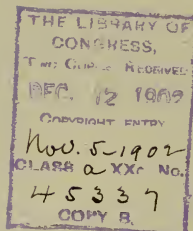 THE LIBRARY OF
CONGRESS,
TWO COPIES RECEIVED
DEC. 12 1902
COPYRIGHT ENTRY
Nov. 5-1902
CLASS a XXc No.
45337
COPY B.